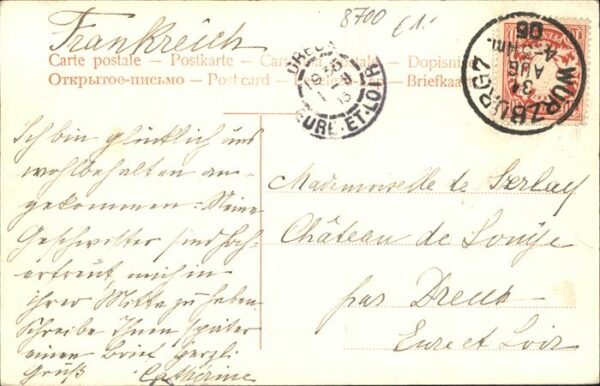 Frankreich
8700
€1.-
Carte postale – Postkarte – Cartolina postale – Dopisnice
Открытое-письмо – Post card – Briefkaart
DREUX
EURE-ET-LOIR
WÜRZBURG 2
31 AUG
4-5 Nm.
06
10
Ich bin glücklich und
wohlbehalten an-
gekommen. Meine
Geschwister sind hoch-
erfreut, mich in
ihrer Mitte zu haben
Schreibe Ihnen später
einen Brief herzl.
Gruß Catherine
Mademoiselle de
Château de
par Dreux
Eure et Loir